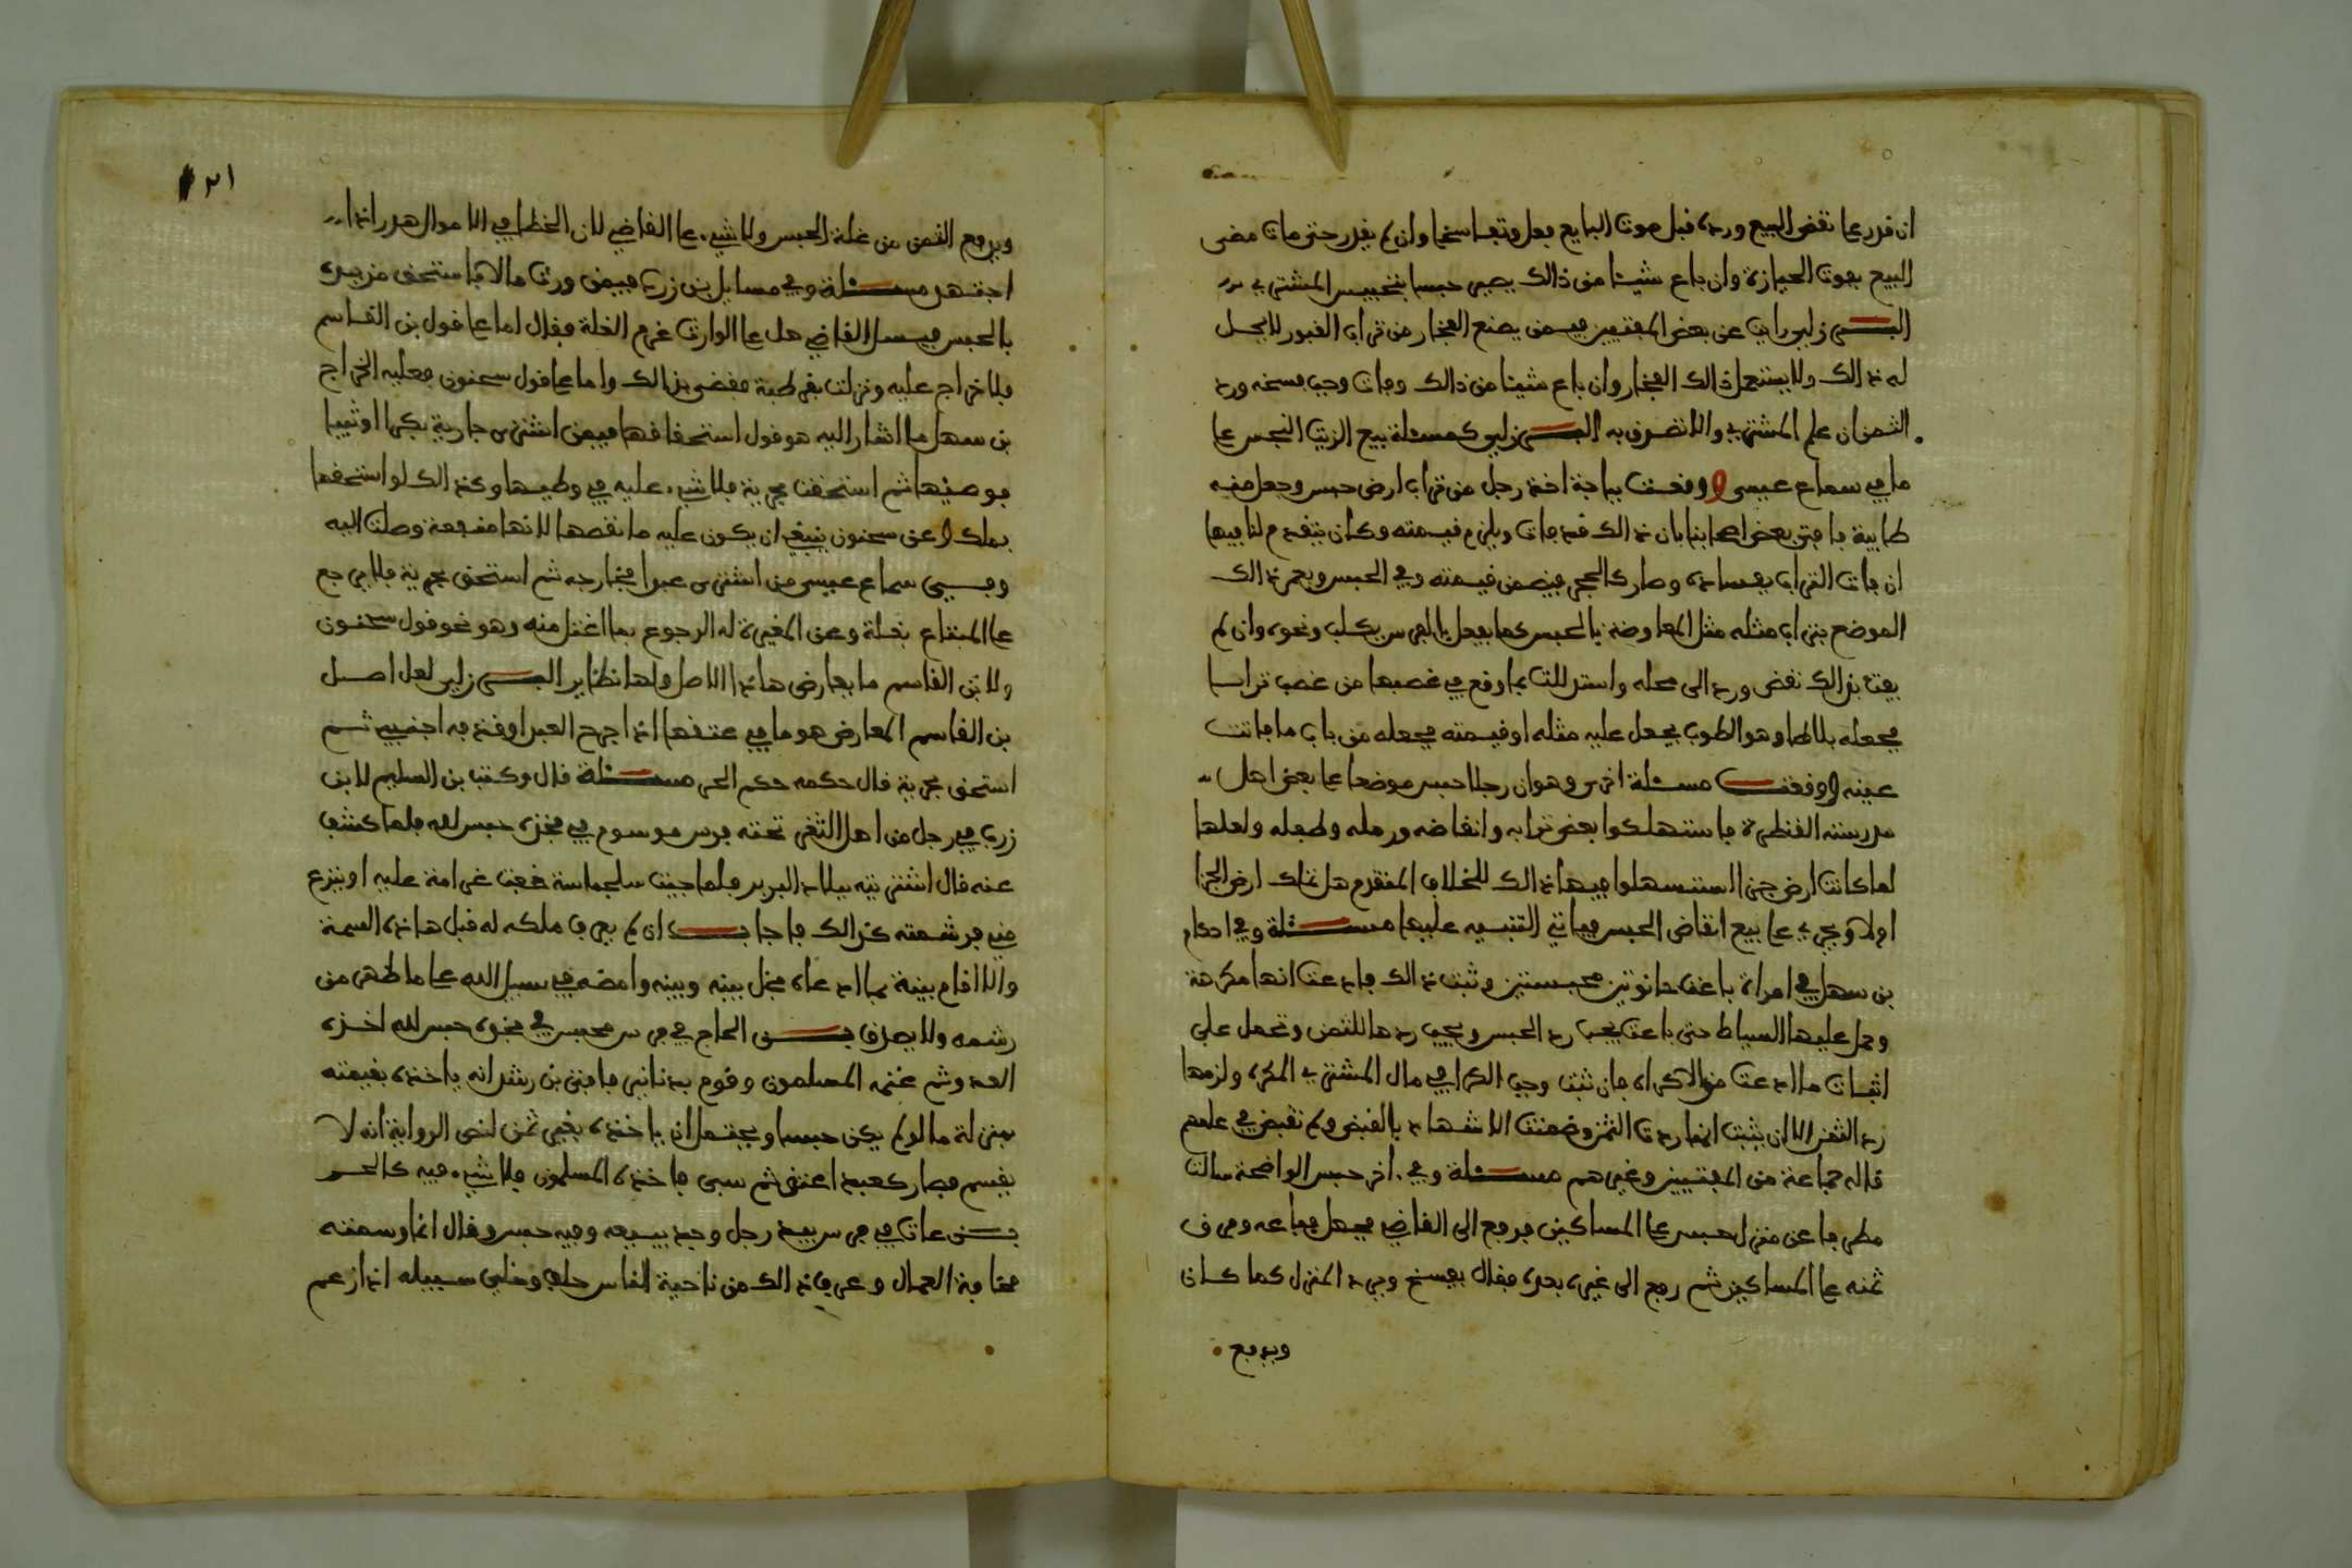 ان قدر على نقض البيع ورده قبل موت البايع فعل وتفاسخا وان لم يقدر حتى مات مضى
البيع بموت الحيازة وان باع شيئا من ذالك يصير حبسا بتحبيس المشتري
البرزلي رايت عن بعض المفتيين فيمن يصنع الفخار من تراب القبور لا يحل
له ذالك ولا يستعمل ذالك الفخار وان باع شيئا من ذالك وفات وجب فسخه ورد
الثمن ان علم المشتري والا تصدق به البرزلي كمسئلة بيع الزيت النجس على
ما في سماع عيسى ووقعت بباجة اخذ رجل من تراب ارض حبس وجعل منه
طابية فافتى بعض اصحابنا بان ذالك قد فات ويلزم قيمته وكان يتقدم لنا فيها
ان فات التراب بفساده وصار كالحجر فيضمن قيمته وفي الحبس ويعمر ذالك
الموضع بتراب مثله مثل المعاوضة بالحبس كما يفعل بالفرس يكلب ونحوه وان لم
يفت بذالك نقض ورد الى محله واستدللت بما وقع في غصبها من غصب ترابا
فجعله بلاطا وهو الطوب يجعل عليه مثله او قيمته فجعله من باب ما فاتت
عينه ووقعت مسئلة اخرى وهو ان رجلا حبس موضعا على بعض اهل
مدرسته القنطرة فاستهلكوا بعض ترابه وانقاضه ورمله وطفله ولعلها
لما كانت ارض جزا استسهلوا فيها ذالك للخلاف المتقدم هل تملك ارض الجزا
اولا ويجري على بيع انقاض الحبس فياتي التنبيه عليها مسئلة وفي احكام
بن سهل في امراة باعت حانوتين محبستين وثبت ذالك فادعت انها مكرهة
وحمل عليها السياط حتى باعت يجب رد الحبس ويجب ردها للثمن وتحمل على
اثبات ما ادعت من الاكراه فان ثبت وجب الكرا في مال المشتري المكره ولزمها
رد الثمن الا ان يثبت انها ردت الثمن وضمنت الاشهاد بالقبض ولم تقبض في علمهم
قاله جماعة من المفتيين وغيرهم مسئلة وفي اخر حبس الواضحة سالت
مطرفا عن منزل حبس على المساكين فرفع الى القاضي فجهل فباعه وفرق
ثمنه على المساكين ثم رفع الى غيره بعده فقال يفسخ ويرد المنزل كما كان
ويدفع
٢١
ويدفع الثمن من غلة الحبس ولا شيء على القاضي لان الخطا في الاموال هدر اذا
اجتهد مسئلة وفي مسايل بن زرب فيمن ورث مالا فاستحق من يده
بالحبس فيسئل القاضي هل على الوارث غرم الغلة فقال اما على قول بن القاسم
فلا خراج عليه ونزلت بقرطبة فقضى بذالك واما على قول سحنون فعليه الخراج
بن سهل ما اشار اليه هو قول استحقاقها فيمن اشترى جارية بكرا او ثيبا
فوطئها ثم استحقت بحرية فلا شيء عليه في وطيها وكذالك لو استحقها
بملك وعن سحنون ينبغي ان يكون عليه ما نقصها لانها منفعة وصلت اليه
وفي سماع عيسى من اشترى عبدا فخارجه ثم استحق بحرية فلا يرجع
على المبتاع بغلة وعن المغيرة له الرجوع بما اغتل منه وهو نحو قول سحنون
ولابن القاسم ما يعارض هاذا الاصل ولها نظاير البرزلي لعل اصل
بن القاسم المعارض هو ما في عتقها اذا جرح العبد او قذفه اجنبي ثم
استحق بحرية قال حكمه حكم الحر مسئلة قال وكتب بن السليم لابن
زرب في رجل من اهل الثغر تحته فرس موسوم في فخذه حبس لله فلما كشف
عنه قال اشتريته ببلاد البربر فلما جيت سلجماسة خفت غرامة عليه او ينزع
مني فرشمته كذالك فاجاب ان لم يعرف ملكه له قبل هاذه السمة
والا اقام بينة بما ادعاه فخل بينه وبينه وامضه في سبيل الله على ما ظهر من
رشمه ولا يصدق بن الحاج في فرس محبس في فخذه حبس لله اخذه
العدو ثم غنمه المسلمون وقوم بدنانير فافتى بن رشد انه ياخذه بقيمته
بمنزلة ما لو لم يكن حبسا ويحتمل ان ياخذه بغير ثمن لنص الرواية انه لا
يقسم فصار كعبد اعتق ثم سبي فاخذه المسلمون فلا شيء فيه كالحر
بن عات في فرس بيد رجل وجد يبيعه وفيه حبس وقال انما وسمته
مخافة العمال وعرف ذالك من ناحية الناس حلف وخلي سبيله اذا زعم